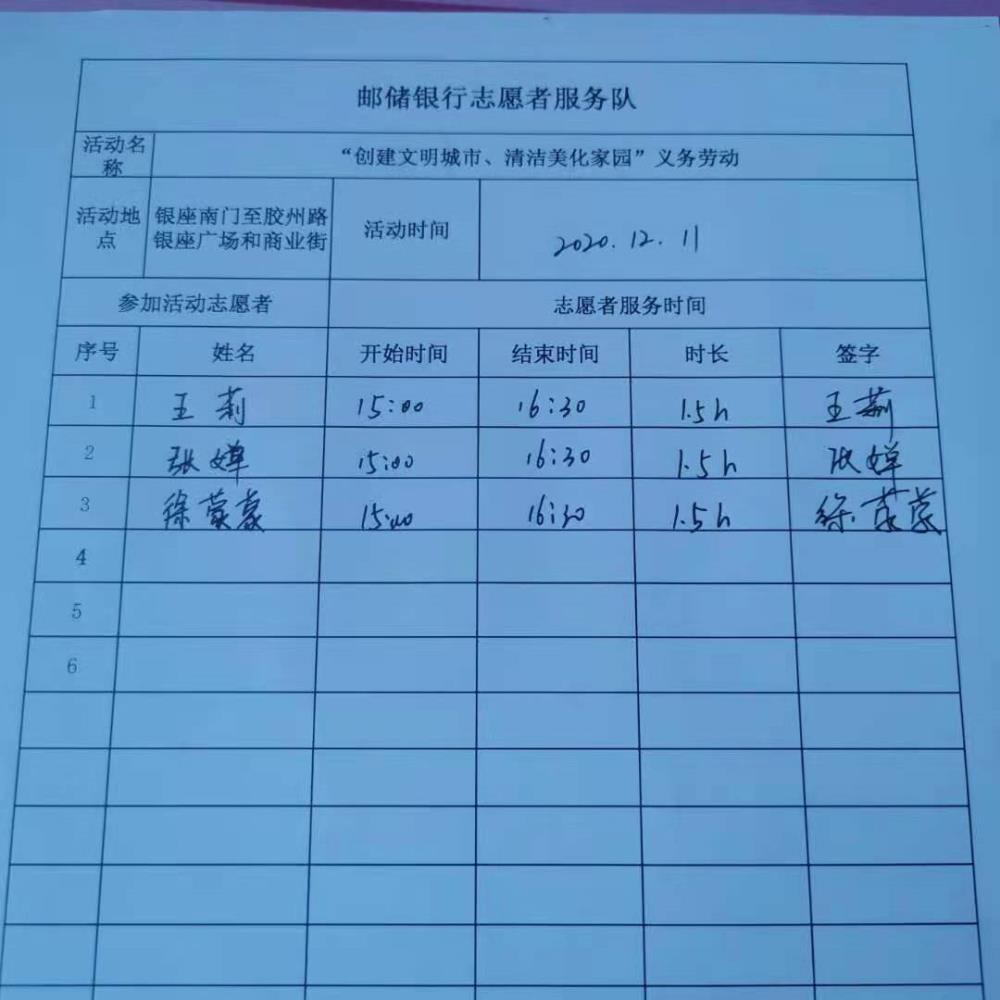 邮储银行志愿者服务队
活动名称 “创建文明城市、清洁美化家园”义务劳动
活动地点 银座南门至胶州路银座广场和商业街 活动时间 2020.12.11
参加活动志愿者 志愿者服务时间
序号 姓名 开始时间 结束时间 时长 签字
1 王莉 15:00 16:30 1.5h 王莉
2 张婵 15:00 16:30 1.5h 张婵
3 徐蒙蒙 15:00 16:30 1.5h 徐蒙蒙
4
5
6